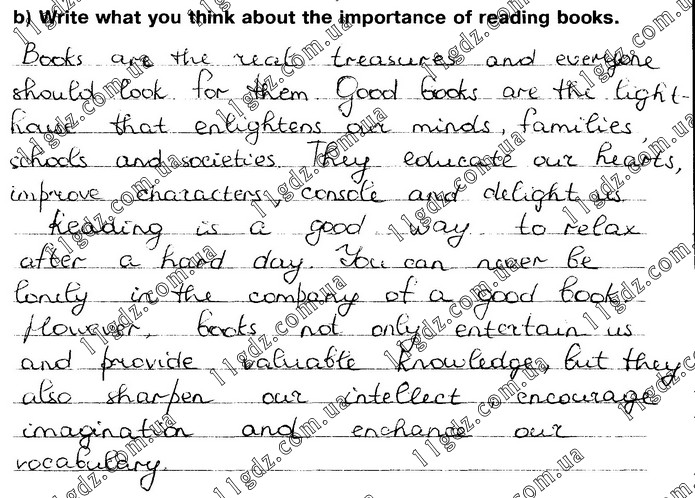 b) Write what you think about the importance of reading books.
Books are the real treasures and everyone
should look for them. Good books are the light-
house that enlightens our minds, families,
schools and societies. They educate our hearts,
improve characters, console and delight us.
Reading is a good way to relax
after a hard day. You can never be
lonely in the company of a good book.
However, books not only entertain us
and provide valuable knowledge, but they
also sharpen our intellect, encourage
imagination and enchance our
vocabulary.
11gdz.com.ua